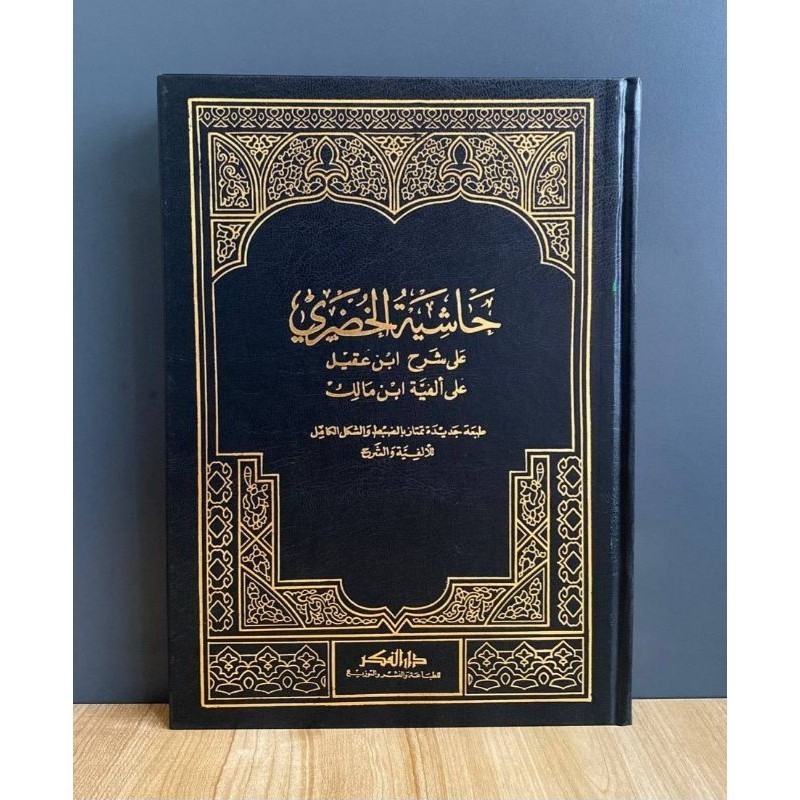 حَاشِيَةُ الخُضَرِيّ
عَلى شَرح ابن عَقيل
عَلى ألفيَّة ابن مَالِك
طبعَة جَديدَة تمتَاز بالضبط وَالشكل الكامِل
للألفِيَّة وَالشَّرح
دار الفكر
للطبَاعَة وَالنشر والتوزيع